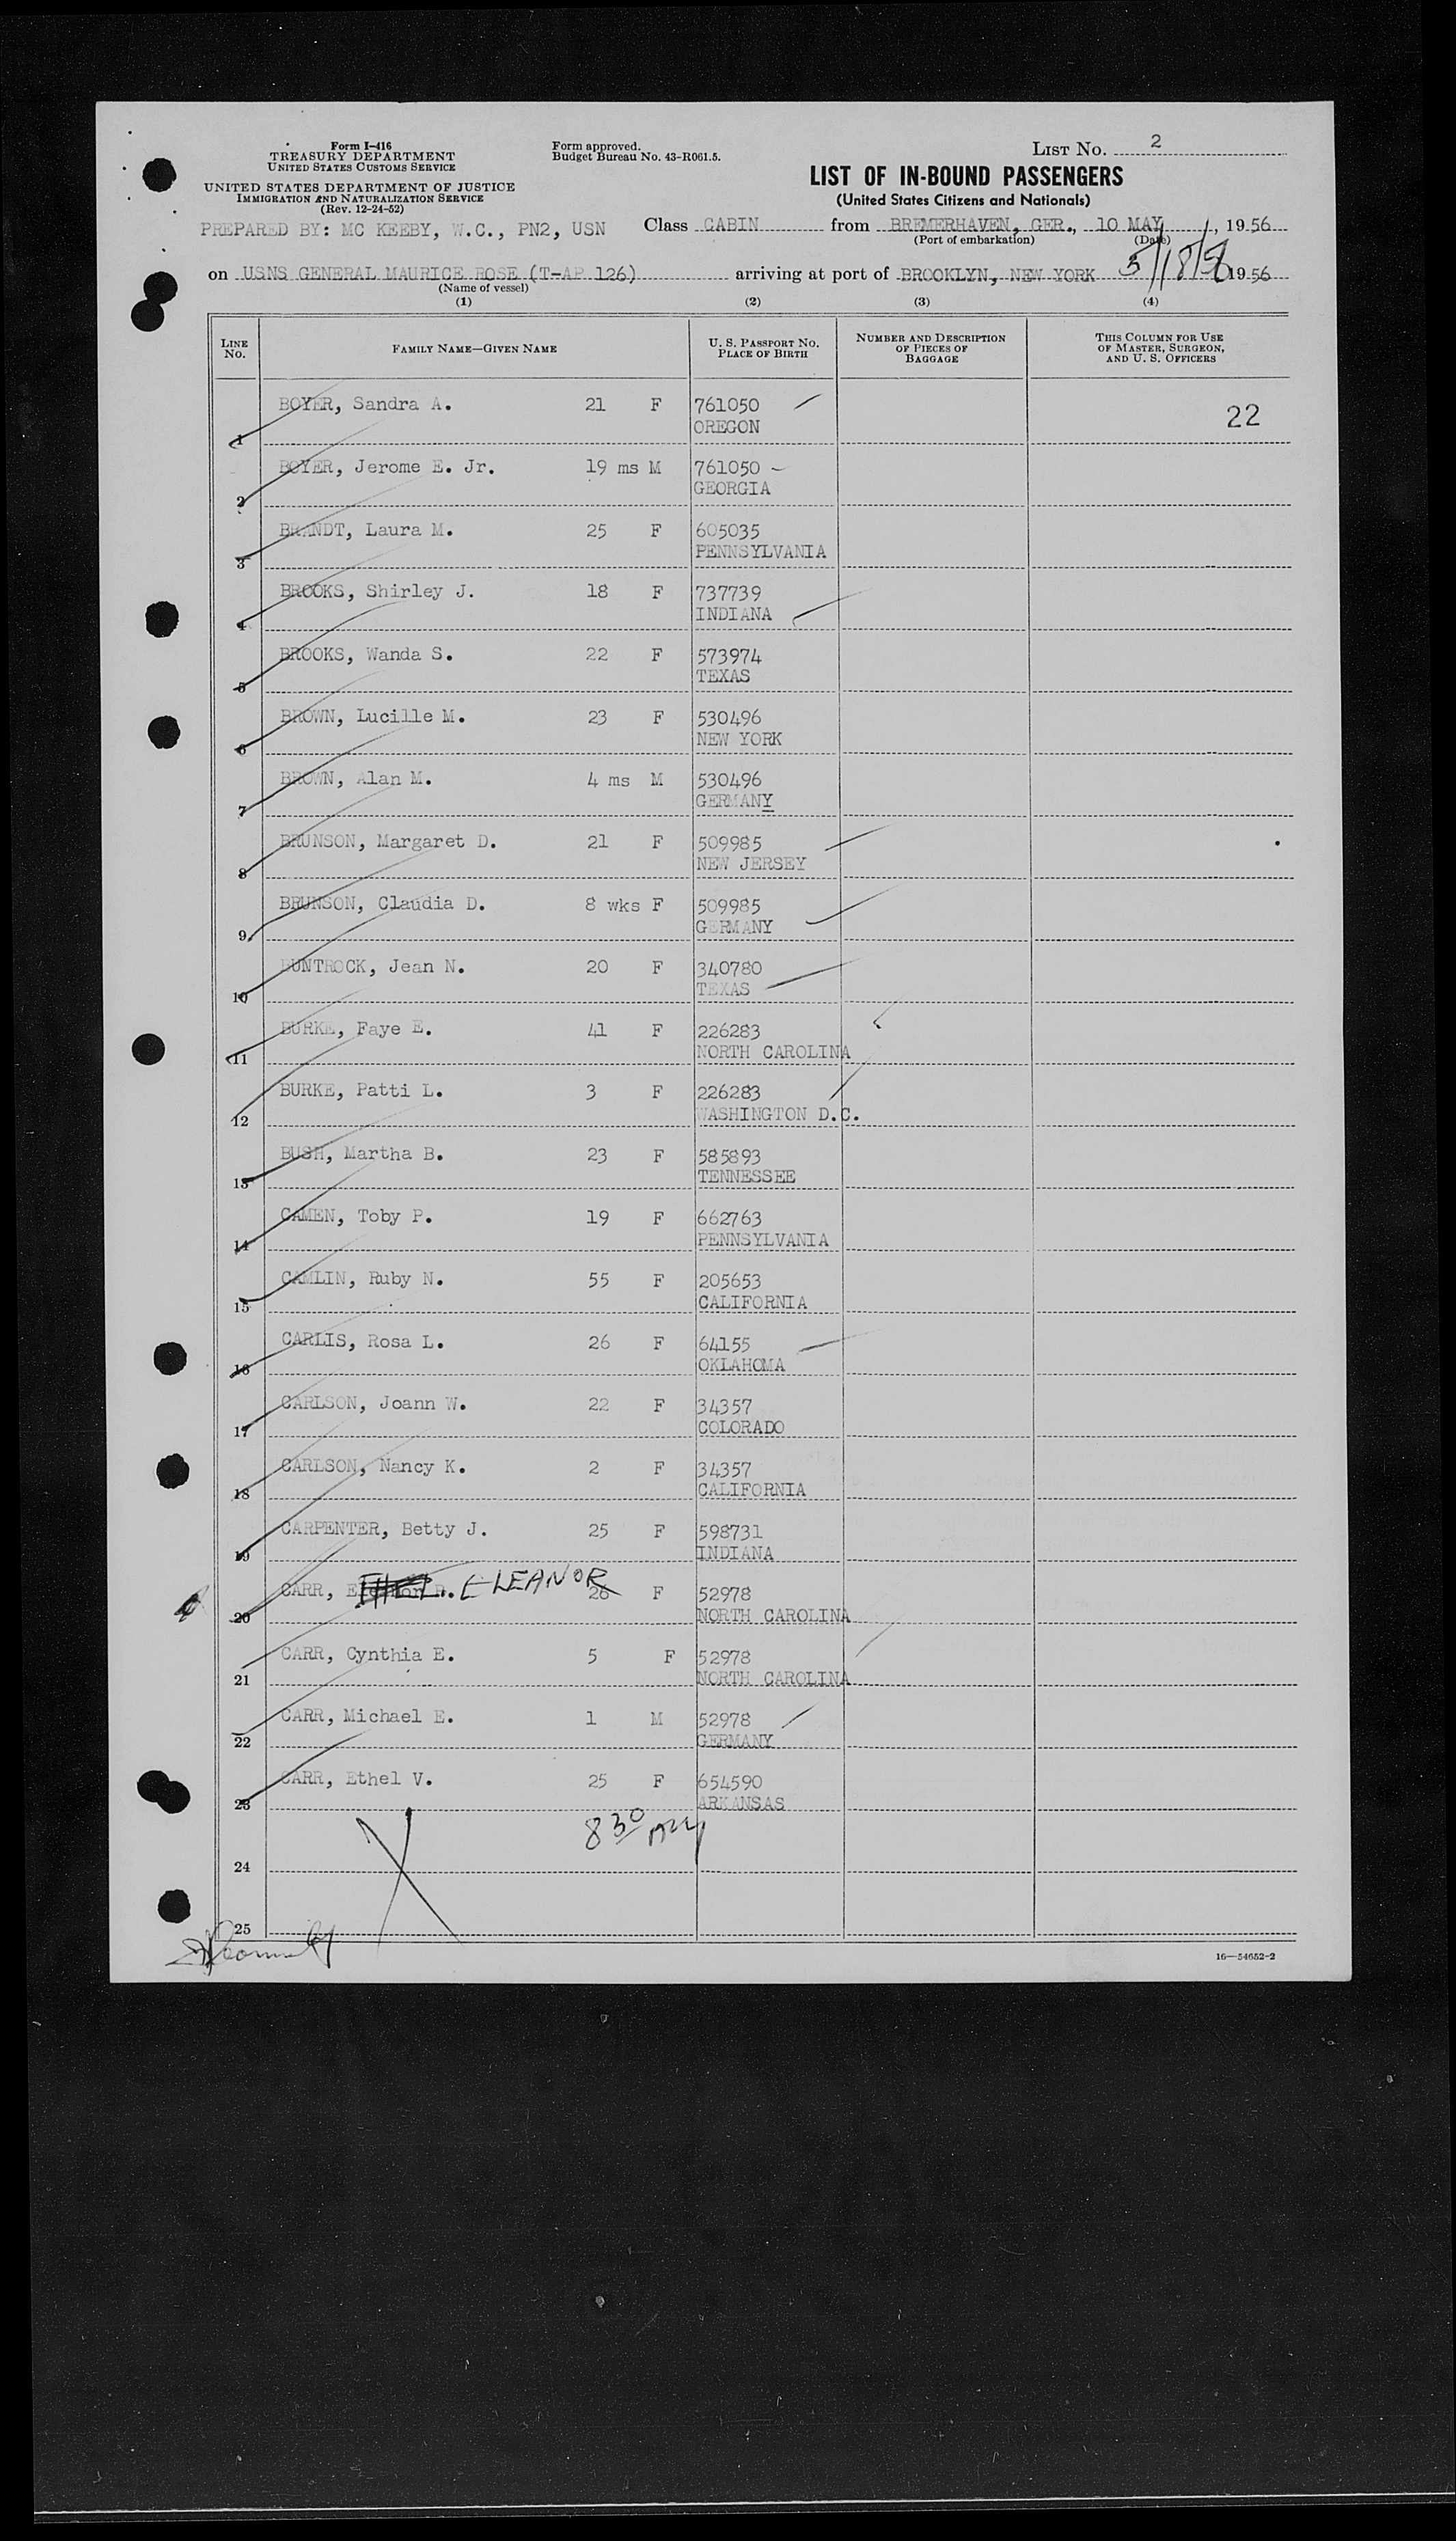 Form I-416
TREASURY DEPARTMENT
UNITED STATES CUSTOMS SERVICE
UNITED STATES DEPARTMENT OF JUSTICE
IMMIGRATION AND NATURALIZATION SERVICE
(Rev. 12-24-52)
PREPARED BY: MC KEEBY, W.C., PN2, USN
Form approved.
Budget Bureau No. 43-R061.5.
LIST No. 2
LIST OF IN-BOUND PASSENGERS
(United States Citizens and Nationals)
Class CABIN from BREMERHAVEN, GER., 10 MAY, 1956
(Port of embarkation) (Date)
on USNS GENERAL MAURICE ROSE (T-AP 126) arriving at port of BROOKLYN, NEW YORK 5/18/56 1956
(Name of vessel)
(1) (2) (3) (4)
LINE No. FAMILY NAME—GIVEN NAME U. S. PASSPORT No. PLACE OF BIRTH NUMBER AND DESCRIPTION OF PIECES OF BAGGAGE THIS COLUMN FOR USE OF MASTER, SURGEON, AND U. S. OFFICERS
BOYER, Sandra A. 21 F 761050 22
1 OREGON
BOYER, Jerome E. Jr. 19 ms M 761050
2 GEORGIA
BRANDT, Laura M. 25 F 605035
3 PENNSYLVANIA
BROOKS, Shirley J. 18 F 737739
4 INDIANA
BROOKS, Wanda S. 22 F 573974
5 TEXAS
BROWN, Lucille M. 23 F 530496
6 NEW YORK
BROWN, Alan M. 4 ms M 530496
7 GERMANY
BRUNSON, Margaret D. 21 F 509985
8 NEW JERSEY
BRUNSON, Claudia D. 8 wks F 509985
9 GERMANY
BUNTROCK, Jean N. 20 F 340780
10 TEXAS
BURKE, Faye E. 41 F 226283
11 NORTH CAROLINA
BURKE, Patti L. 3 F 226283
12 WASHINGTON D.C.
BUSH, Martha B. 23 F 585893
13 TENNESSEE
CAMEN, Toby P. 19 F 662763
14 PENNSYLVANIA
CAMLIN, Ruby N. 55 F 205653
15 CALIFORNIA
CARLIS, Rosa L. 26 F 64155
16 OKLAHOMA
CARLSON, Joann W. 22 F 34357
17 COLORADO
CARLSON, Nancy K. 2 F 34357
18 CALIFORNIA
CARPENTER, Betty J. 25 F 598731
19 INDIANA
CARR, ELEANOR 26 F 52978
20 NORTH CAROLINA
CARR, Cynthia E. 5 F 52978
21 NORTH CAROLINA
CARR, Michael E. 1 M 52978
22 GERMANY
CARR, Ethel V. 25 F 654590
23 ARKANSAS
830
24
25
16—54652-2